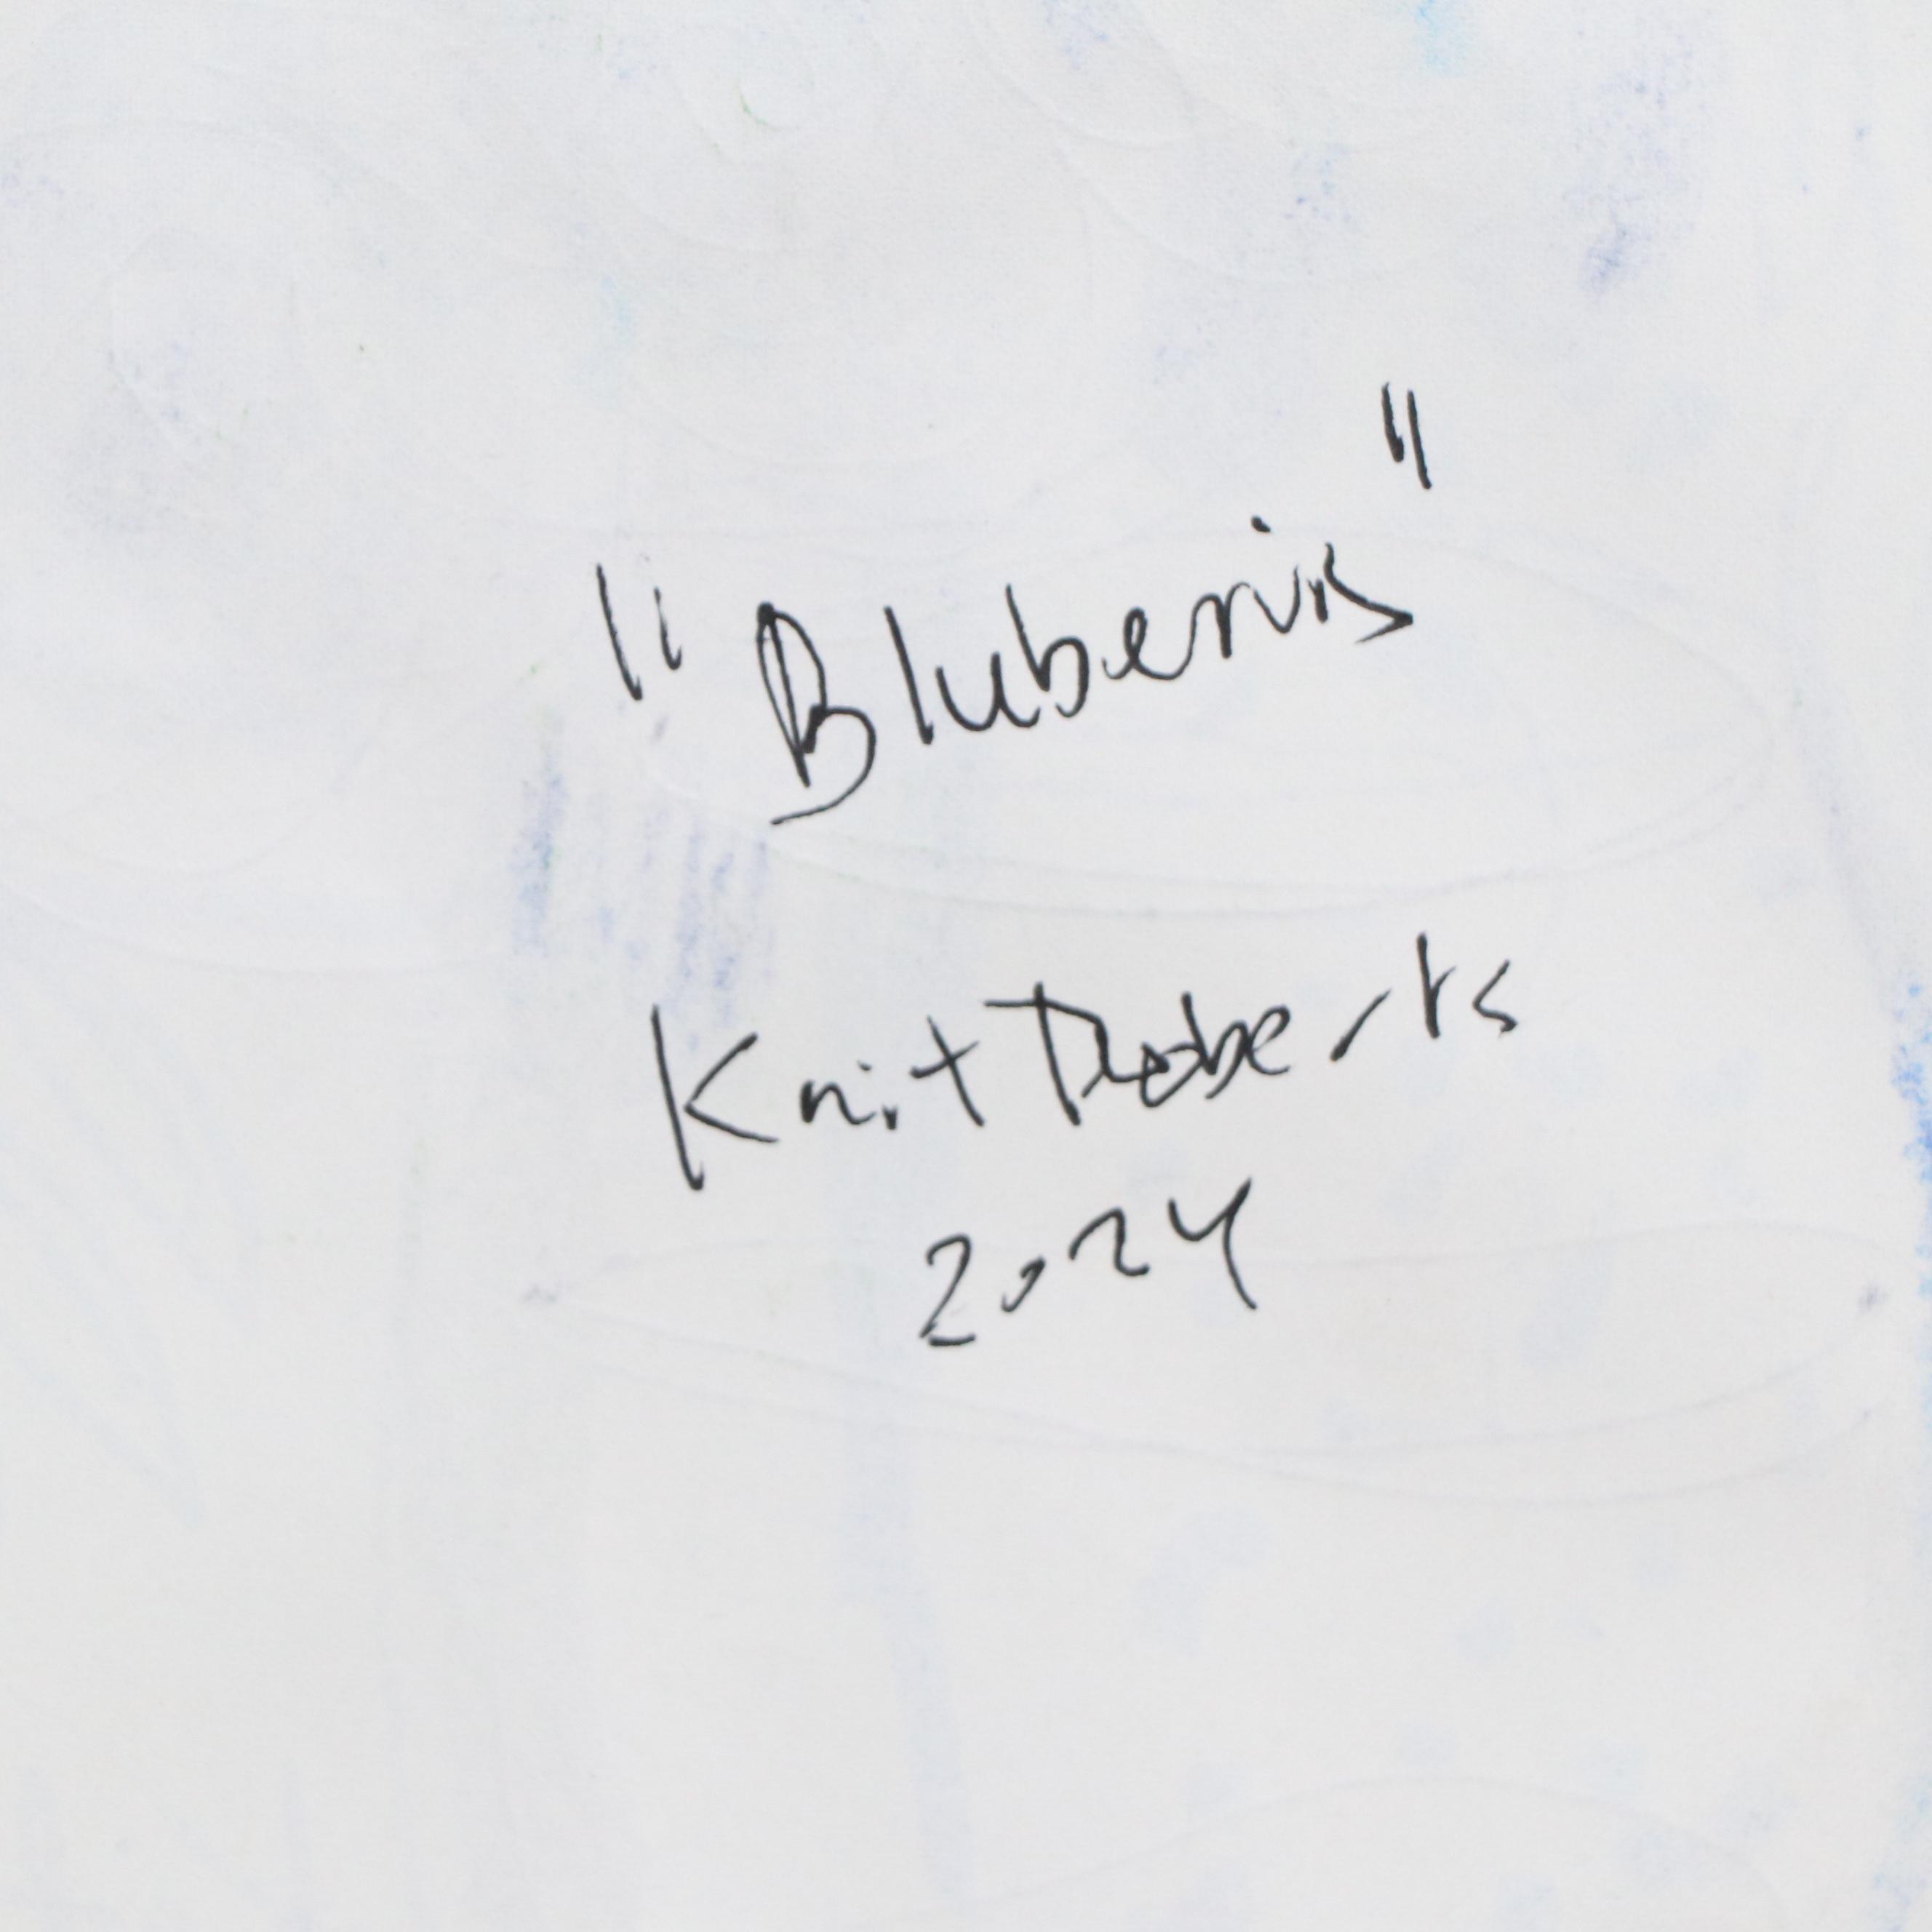 "Bluberris"
Knit Roberts
2024